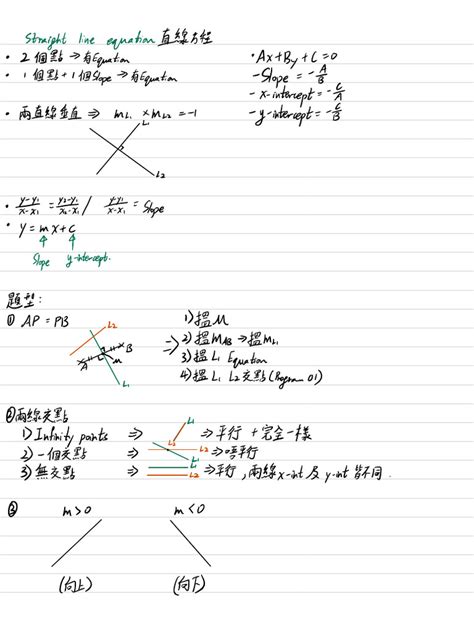 Straight line equation 直線方程
• 2 個點 → 有Equation
• 1 個點 + 1 個Slope → 有Equation
• Ax + By + C = 0
- Slope = -A/B
- x-intercept = -C/A
- y-intercept = -C/B
• 兩直線垂直 ⇒ mL₁ × mL₂ = -1
L₁
L₂
• y-y₁/x-x₁ = y₂-y₁/x₂-x₁ / y-y₁/x-x₁ = Slope
• y = mx + c
Slope y-intercept.
題型:
① AP = PB
L₂
A
B
M
L₁
1) 搵M
⇒ 2) 搵mAB → 搵mL₁
3) 搵L₁ Equation
4) 搵L₁ L₂交點 (Program 01)
② 兩線交點
1) Infinity points ⇒ L₁ L₂ ⇒ 平行 + 完全一樣
2) 一個交點 ⇒ L₂ L₁ ⇒ 唔平行
3) 無交點 ⇒ ⇒ 平行, 兩線 x-int 及 y-int 皆不同.
③
m > 0 m < 0
(向上) (向下)